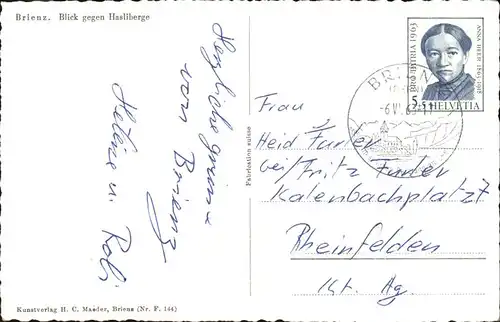 Brienz. Blick gegen Hasliberge
Herzliche grüsse
von Brienz
Helene u. Robi
Fabrication suisse
PRO PATRIA 1963
ANNA HEER 1863-1918
5+5 HELVETIA
BRIENZ
Frau
Heid Furler
bei/Fritz Furler
Kalenbachplatz 7
Rheinfelden
Kt. Ag.
Kunstverlag H. C. Maeder, Brienz (Nr. F. 144)